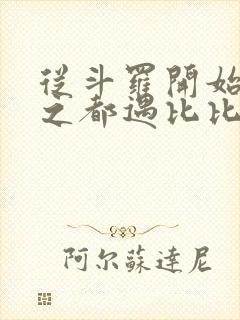 從斗羅開始
之都遇比比
阿尔蘇達尼